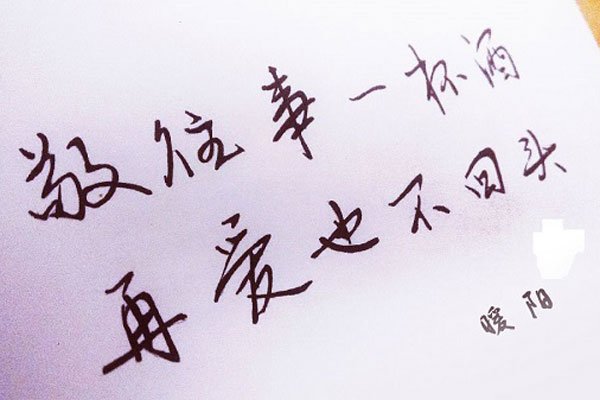 敬往事一杯酒
再爱也不回头
暖阳